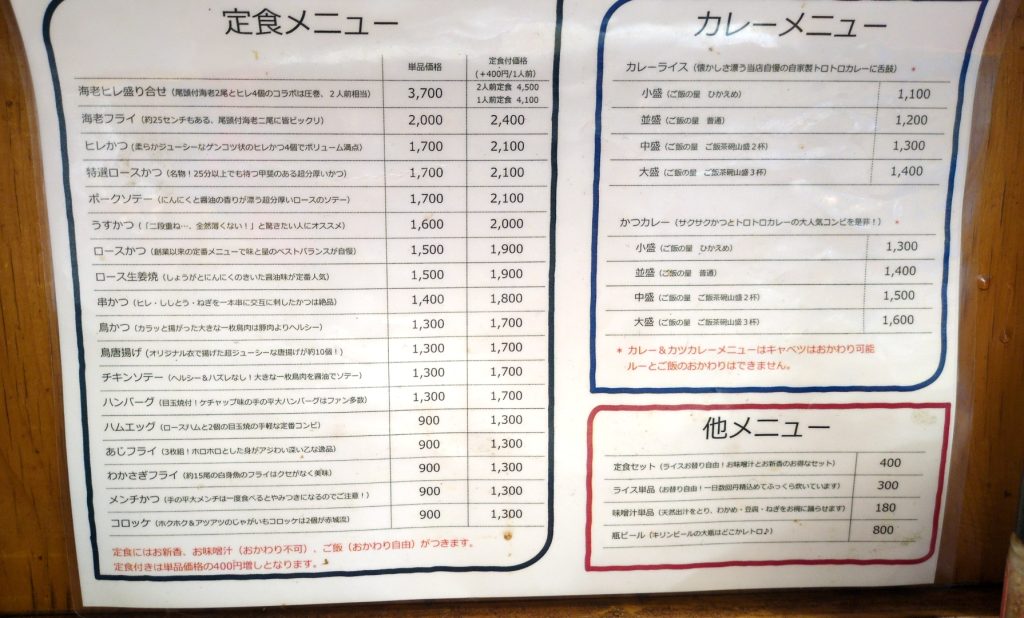 定食メニュー
単品価格 定食付価格
(+400円/1人前)
海老ヒレ盛り合せ（尾頭付海老2尾とヒレ4個のコラボは圧巻、２人前相当） 3,700 2人前定食 4,500
1人前定食 4,100
海老フライ（約25センチもある、尾頭付海老二尾に皆ビックリ） 2,000 2,400
ヒレかつ（柔らかジューシーなゲンコツ状のヒレかつ4個でボリューム満点） 1,700 2,100
特選ロースかつ（名物！25分以上でも待つ甲斐のある超分厚いかつ） 1,700 2,100
ポークソテー（にんにくと醤油の香りが漂う超分厚いロースのソテー） 1,700 2,100
うすかつ（「二段重ね…、全然薄くない！」と驚きたい人にオススメ） 1,600 2,000
ロースかつ（創業以来の定番メニューで味と量のベストバランスが自慢） 1,500 1,900
ロース生姜焼（しょうがとにんにくのきいた醤油味が定番人気） 1,500 1,900
串かつ（ヒレ・ししとう・ねぎを一本串に交互に刺したかつは絶品） 1,400 1,800
鳥かつ（カラッと揚がった大きな一枚鳥肉は豚肉よりヘルシー） 1,300 1,700
鳥唐揚げ（オリジナル衣で揚げた超ジューシーな唐揚げが約10個！） 1,300 1,700
チキンソテー（ヘルシー＆ハズレなし！大きな一枚鳥肉を醤油でソテー） 1,300 1,700
ハンバーグ（目玉焼付！ケチャップ味の手の平大ハンバーグはファン多数） 1,300 1,700
ハムエッグ（ロースハムと2個の目玉焼の手軽な定番コンビ） 900 1,300
あじフライ（3枚組！ホロホロとした身がアジわい深い乙な逸品） 900 1,300
わかさぎフライ（約15尾の白身魚のフライはクセがなく美味） 900 1,300
メンチかつ（手の平大メンチは一度食べるとやみつきになるのでご注意！） 900 1,300
コロッケ（ホクホク＆アツアツのじゃがいもコロッケは2個が赤城流） 900 1,300
定食にはお新香、お味噌汁（おかわり不可）、ご飯（おかわり自由）がつきます。
定食付きは単品価格の400円増しとなります。
カレーメニュー
カレーライス（懐かしさ漂う当店自慢の自家製トロトロカレーに舌鼓）*
小盛（ご飯の量 ひかえめ） 1,100
並盛（ご飯の量 普通） 1,200
中盛（ご飯の量 ご飯茶碗山盛２杯） 1,300
大盛（ご飯の量 ご飯茶碗山盛３杯） 1,400
かつカレー（サクサクかつとトロトロカレーの大人気コンビを是非！）*
小盛（ご飯の量 ひかえめ） 1,300
並盛（ご飯の量 普通） 1,400
中盛（ご飯の量 ご飯茶碗山盛２杯） 1,500
大盛（ご飯の量 ご飯茶碗山盛３杯） 1,600
* カレー＆カツカレーメニューはキャベツはおかわり可能
ルーとご飯のおかわりはできません。
他メニュー
定食セット（ライスお替り自由！お味噌汁とお新香のお得なセット） 400
ライス単品（お替り自由！一日数回丹精込めてふっくら炊いています） 300
味噌汁単品（天然出汁をとり、わかめ・豆腐・ねぎをお椀に踊らせます） 180
瓶ビール（キリンビールの大瓶はどこかレトロ♪） 800